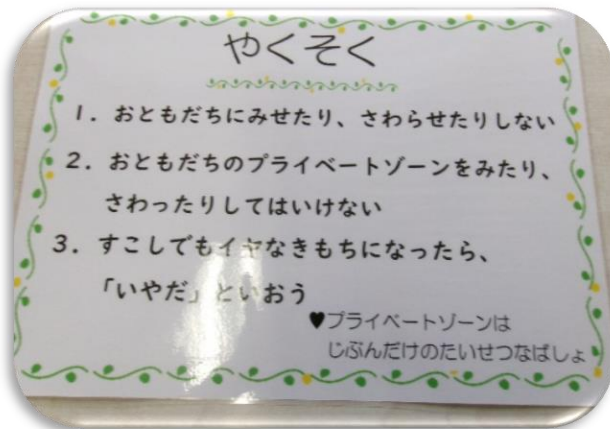 やくそく
1. おともだちにみせたり、さわらせたりしない
2. おともだちのプライベートゾーンをみたり、
さわったりしてはいけない
3. すこしでもイヤなきもちになったら、
「いやだ」といおう
♥プライベートゾーンは
じぶんだけのたいせつなばしょ